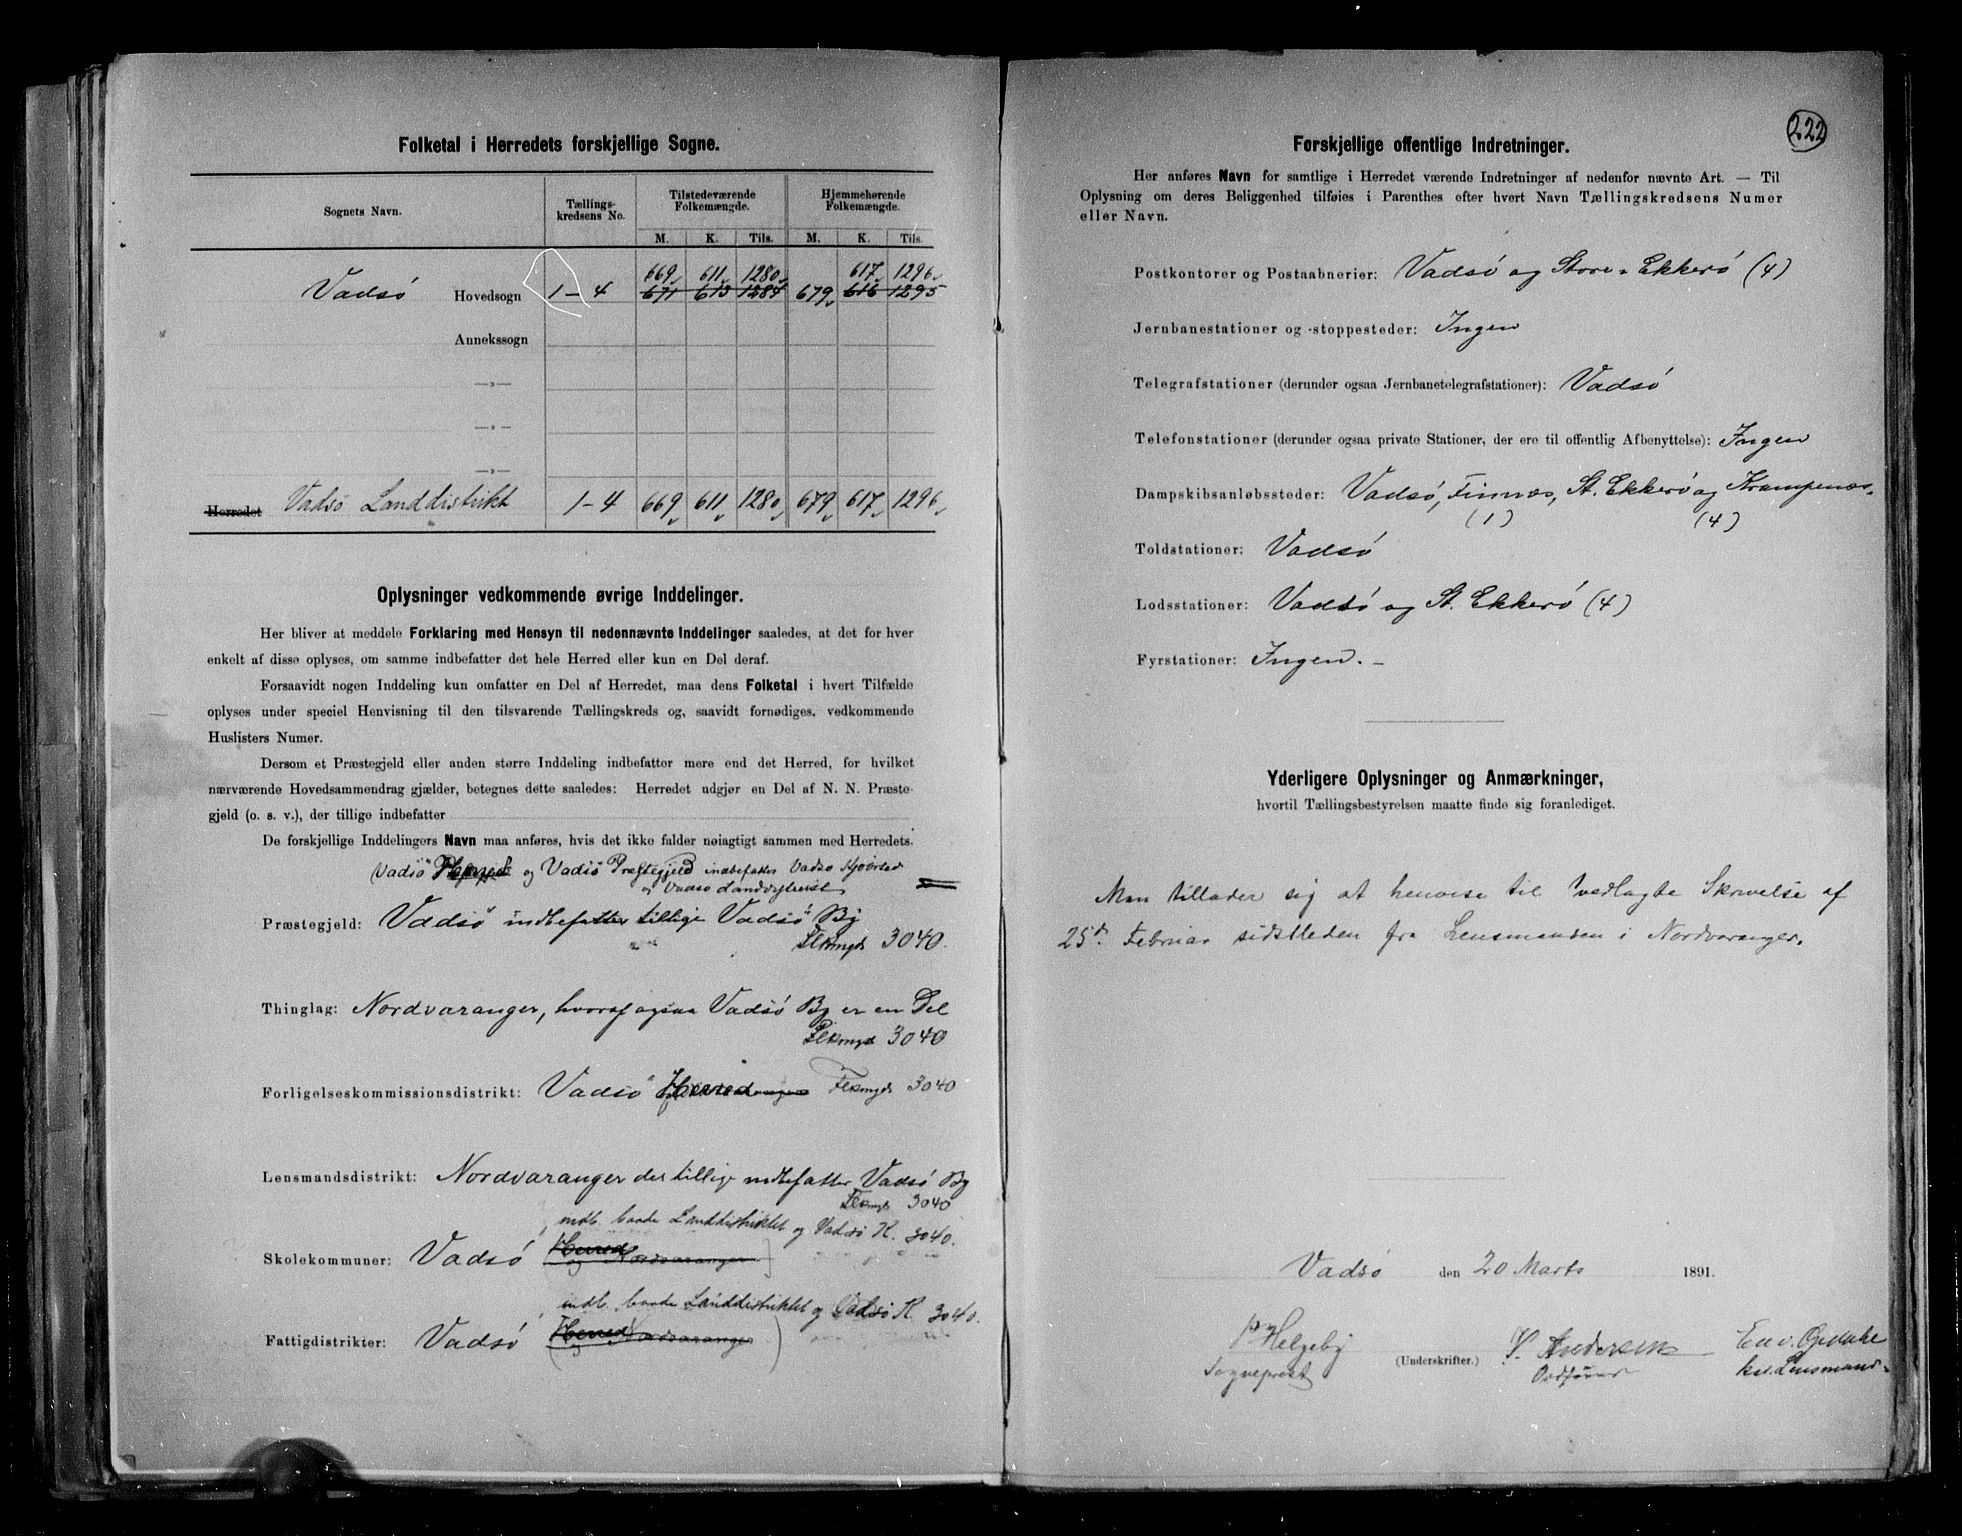 Folketal i Herredets forskjellige Sogne.
Sognets Navn.
Tællings-
kredsens No.
Tilstedeværende
Folkemængde.
Hjemmehørende
Folkemængde.
M. K. Tils. M. K. Tils.
669 611 1280 617 1296
Vadsø Hovedsogn 1-4 671 613 1284 679 616 1295
Annekssogn
—»—
—»—
—»—
Herredet Vadsø Landdistrikt 1-4 669 611 1280 679 617 1296
Oplysninger vedkommende øvrige Inddelinger.
Her bliver at meddele Forklaring med Hensyn til nedennævnte Inddelinger saaledes, at det for hver
enkelt af disse oplyses, om samme indbefatter det hele Herred eller kun en Del deraf.
Forsaavidt nogen Inddeling kun omfatter en Del af Herredet, maa dens Folketal i hvert Tilfælde
oplyses under speciel Henvisning til den tilsvarende Tællingskreds og, saavidt fornødiges, vedkommende
Huslisters Numer.
Dersom et Præstegjeld eller anden større Inddeling indbefatter mere end det Herred, for hvilket
nærværende Hovedsammendrag gjælder, betegnes dette saaledes: Herredet udgjør en Del af N. N. Præste-
gjeld (o. s. v.), der tillige indbefatter
De forskjellige Inddelingers Navn maa anføres, hvis det ikke falder nøiagtigt sammen med Herredets.
Vadsø og Vadsø Præstegjeld indbefatter Vadsø Kjøbsted
og Vadsø Landdistrikt
Præstegjeld: Vadsø indbefatter tillige Vadsø By
Flkmgd 3040.
Thinglag: Nordvaranger, hvoraf ogsaa Vadsø By er en Del
Flkmgd 3040
Forligelseskommissionsdistrikt: Vadsø Herred Flkmgd 3040
Lensmandsdistrikt: Nordvaranger der tillige indbefatter Vadsø By
Flkmgd 3040
indb. baade Landdistriktet og Vadsø K. 3040.
Skolekommuner: Vadsø Herred og Nordvaranger
indb. baade Landdistriktet og Vadsø K 3040.
Fattigdistrikter: Vadsø (Herred og Nordvaranger)
222
Forskjellige offentlige Indretninger.
Her anføres Navn for samtlige i Herredet værende Indretninger af nedenfor nævnte Art. — Til
Oplysning om deres Beliggenhed tilføies i Parenthes efter hvert Navn Tællingskredsens Numer
eller Navn.
Postkontorer og Postaabnerier: Vadsø og Store-Ekkerø (4)
Jernbanestationer og -stoppesteder: Ingen
Telegrafstationer (derunder ogsaa Jernbanetelegrafstationer): Vadsø
Telefonstationer (derunder ogsaa private Stationer, der ere til offentlig Afbenyttelse): Ingen
Dampskibsanløbssteder: Vadsø, Finnæs, St. Ekkerø og Krampenæs.
(1) (4)
Toldstationer: Vadsø
Lodsstationer: Vadsø og St. Ekkerø (4)
Fyrstationer: Ingen. –
Yderligere Oplysninger og Anmærkninger,
hvortil Tællingsbestyrelsen maatte finde sig foranlediget.
Man tillader sig at henvise til vedlagte Skrivelse af
25d. Februar sidstleden fra Lensmanden i Nordvaranger.
Vadsø den 20 Marts 1891.
Helgeby (Underskrifter.) Andersen Opdahl
Sogneprest Ordfører kst. Lensmand.